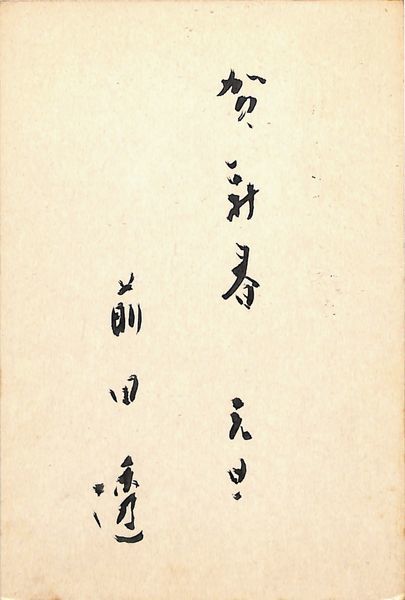 賀新春 元旦
前田透